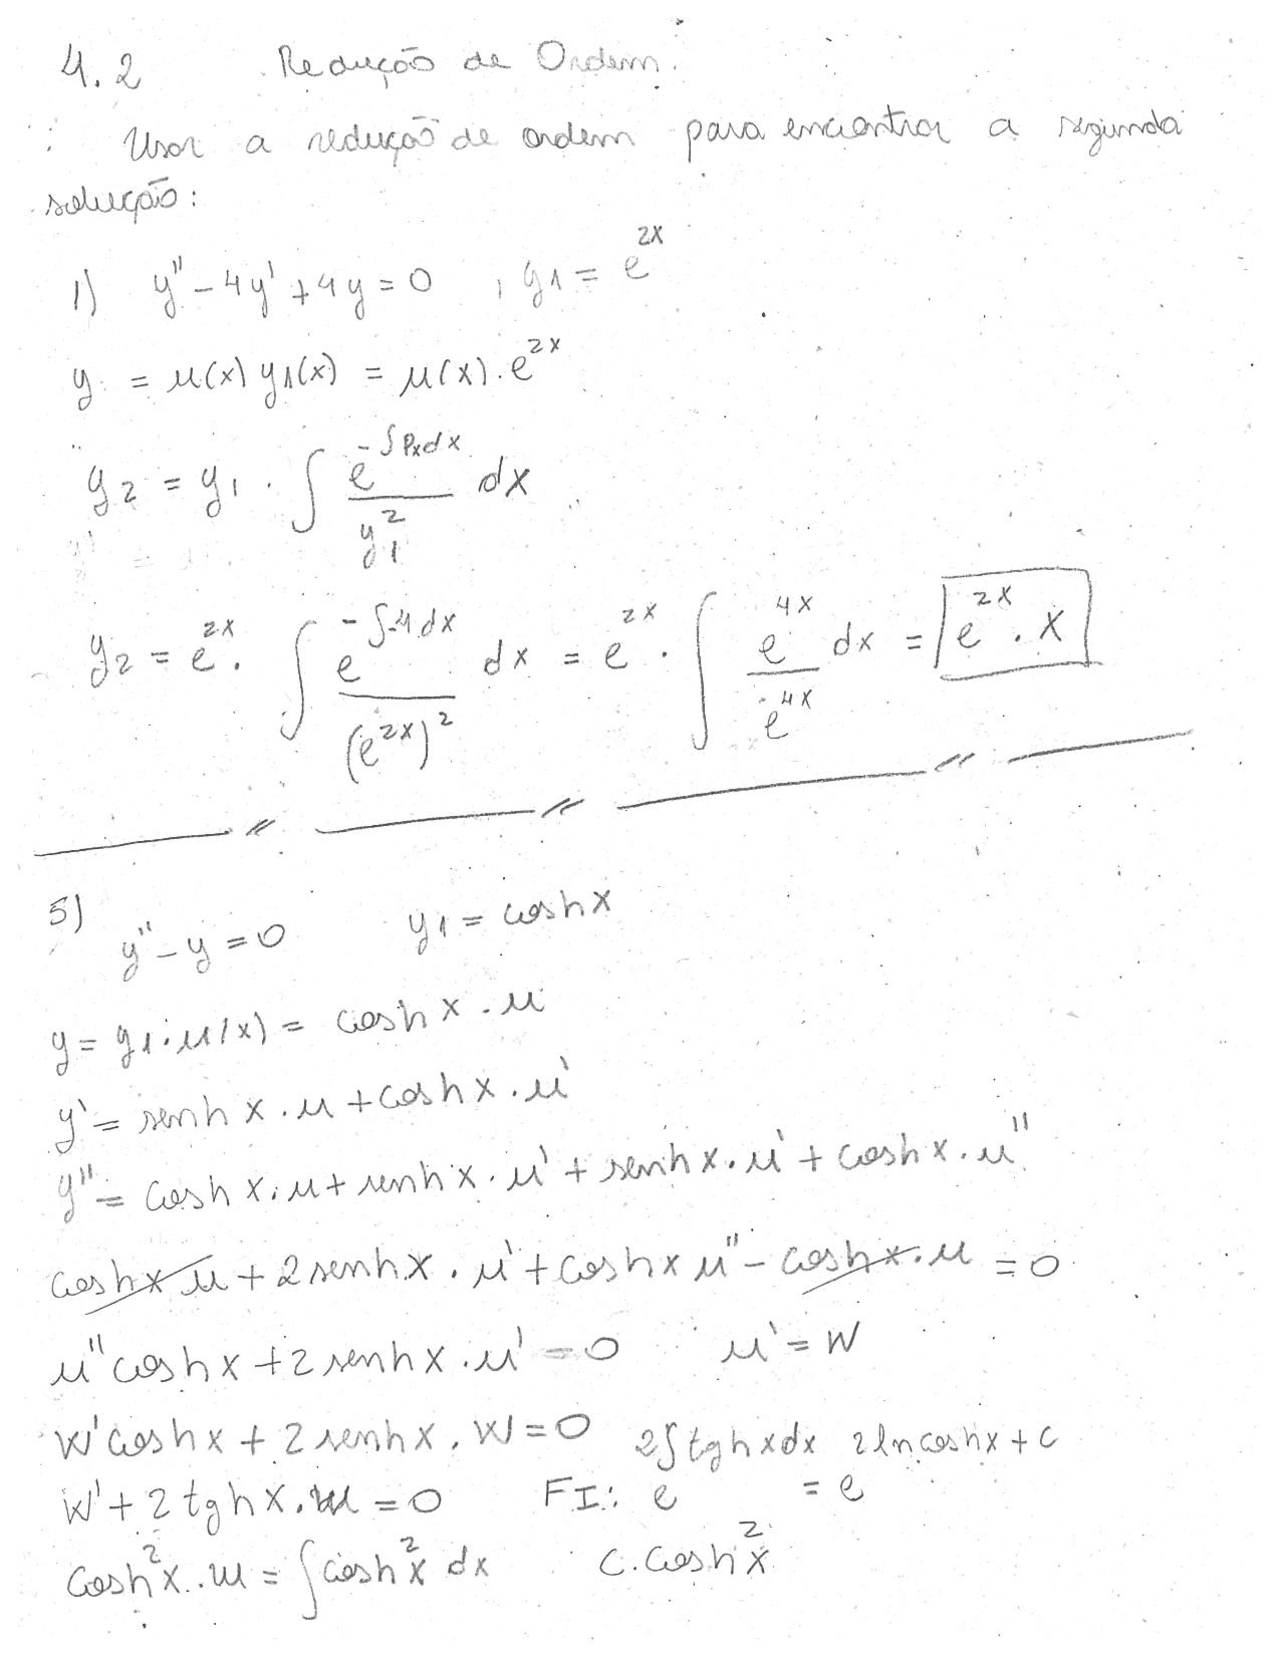 4.2 Redução de Ordem.
Usar a redução de ordem para encontrar a segunda
solução:
1) y'' - 4y' + 4y = 0 , y1 = e^{2x}
y = u(x) y1(x) = u(x) . e^{2x}
y_2 = y_1 . ∫ e^{-∫Pxdx} / y_1^2 dx
y_2 = e^{2x} . ∫ e^{-∫-4dx} / (e^{2x})^2 dx = e^{2x} . ∫ e^{4x} / e^{4x} dx = e^{2x} . x
5) y'' - y = 0 y1 = cosh x
y = y1 . u(x) = cosh x . u
y' = senh x . u + cosh x . u'
y'' = cosh x . u + senh x . u' + senh x . u' + cosh x . u''
cosh x u + 2 senh x . u' + cosh x u'' - cosh x . u = 0
u'' cosh x + 2 senh x . u' = 0 u' = w
w' cosh x + 2 senh x . w = 0
w' + 2 tgh x . w = 0 FI: e^{2∫tgh x dx} = e^{2 ln cosh x + c}
cosh^2 x . w = ∫ cosh^2 x dx c . cosh^2 x